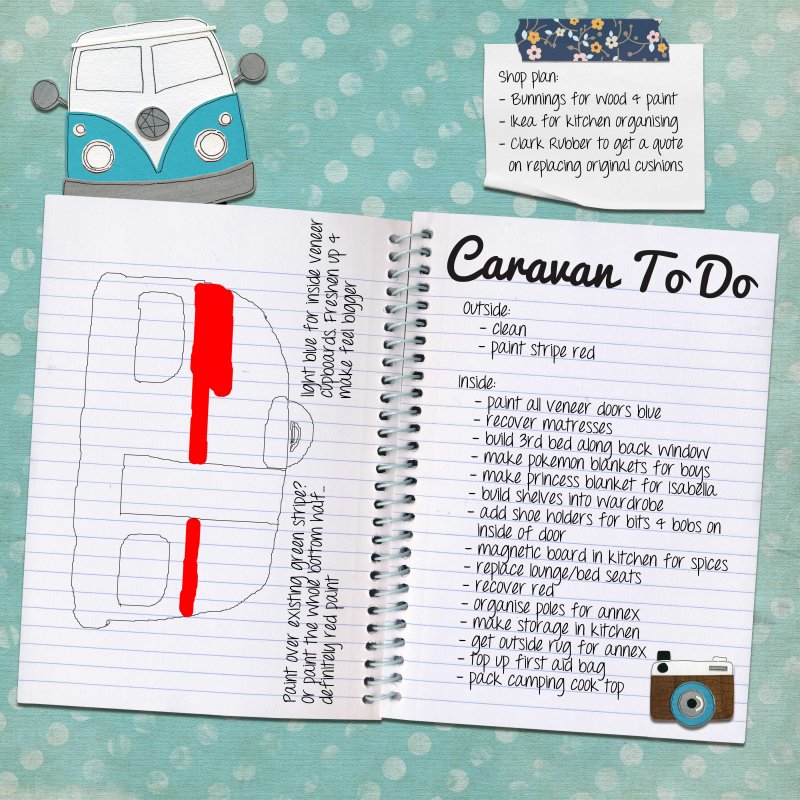 Shop plan:
- Bunnings for wood & paint
- Ikea for kitchen organising
- Clark Rubber to get a quote
on replacing original cushions
light blue for inside veneer
cupboards. Freshen up &
make feel bigger
Paint over existing green stripe?
or paint the whole bottom half...
definitely red paint
Caravan To Do
Outside:
- clean
- paint stripe red
Inside:
- paint all veneer doors blue
- recover matresses
- build 3rd bed along back window
- make pokemon blankets for boys
- make princess blanket for Isabella
- build shelves into wardrobe
- add shoe holders for bits & bobs on
inside of door
- magnetic board in kitchen for spices
- replace lounge/bed seats
- recover red
- organise poles for annex
- make storage in kitchen
- get outside rug for annex
- top up first aid bag
- pack camping cook top